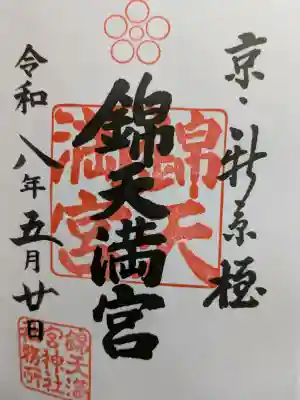 京・新京極
錦天満宮
錦天
満宮
令和八年五月廿日
錦天満
宮神社
務所